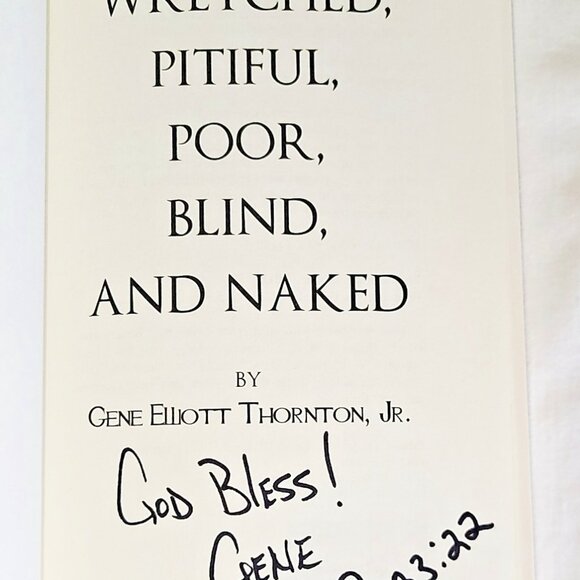 WRETCHED,
PITIFUL,
POOR,
BLIND,
AND NAKED
BY
GENE ELLIOTT THORNTON, JR.
GOD BLESS!
GENE
3:22